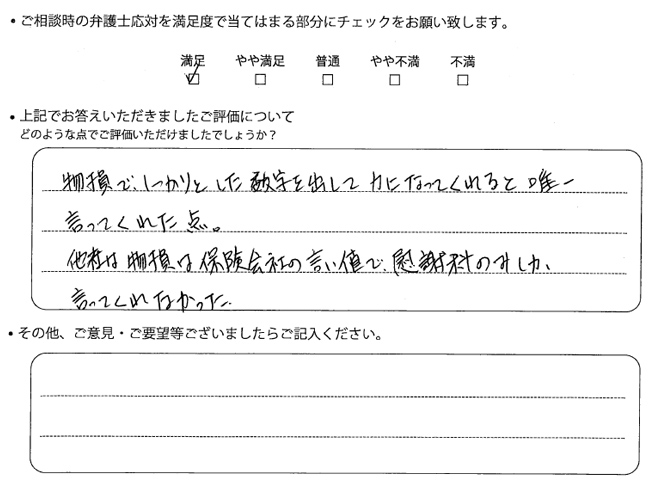 • ご相談時の弁護士応対を満足度で当てはまる部分にチェックをお願い致します。
満足 やや満足 普通 やや不満 不満
☑ □ □ □ □
• 上記でお答えいただきましたご評価について
どのような点でご評価いただけましたでしょうか？
物損で、しっかりとした数字を出して力になってくれると唯一
言ってくれた点。
他社は物損は保険会社の言い値で、慰謝料のみしか、
言ってくれなかった。
• その他、ご意見・ご要望等ございましたらご記入ください。